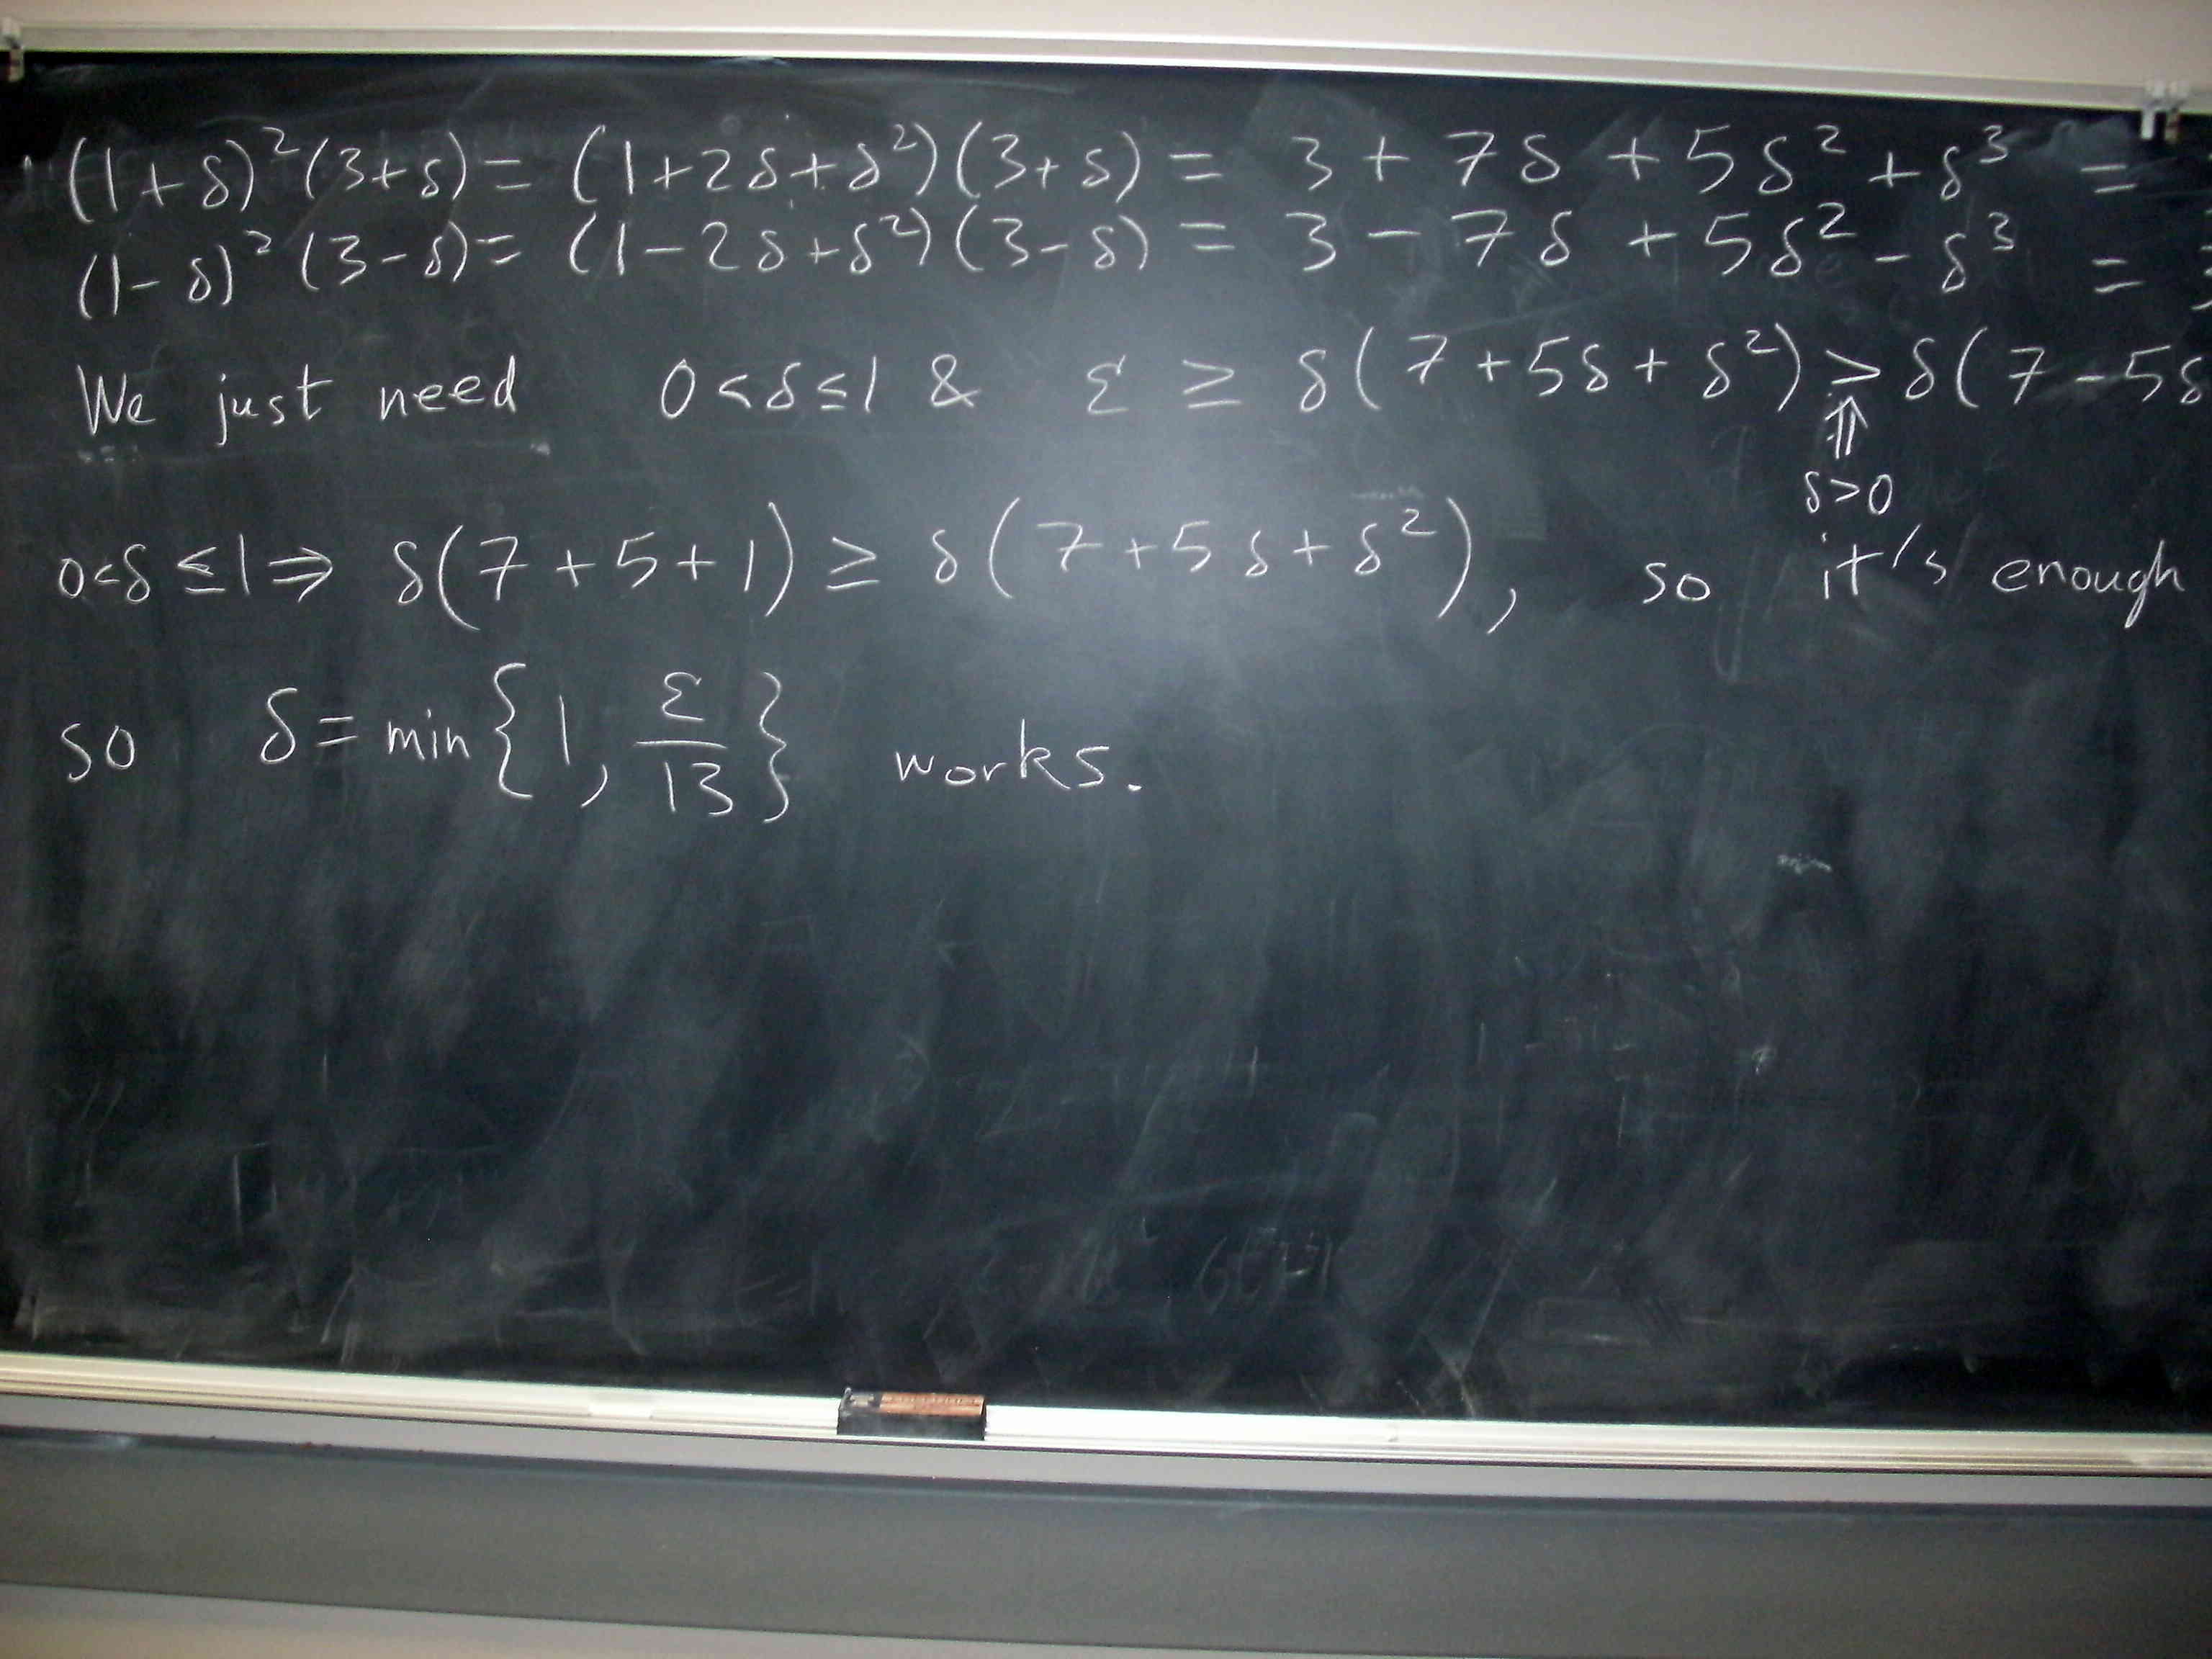 (1+δ)²(3+δ) = (1+2δ+δ²)(3+δ) = 3 + 7δ + 5δ² + δ³ =
(1-δ)²(3-δ) = (1-2δ+δ²)(3-δ) = 3 - 7δ + 5δ² - δ³ =
We just need 0<δ≤1 & ε ≥ δ(7+5δ+δ²) ≥ δ(7-5δ
⇑
δ>0
0<δ≤1 ⇒ δ(7+5+1) ≥ δ(7+5δ+δ²), so it's enough
so δ = min{1, ε/13} works.